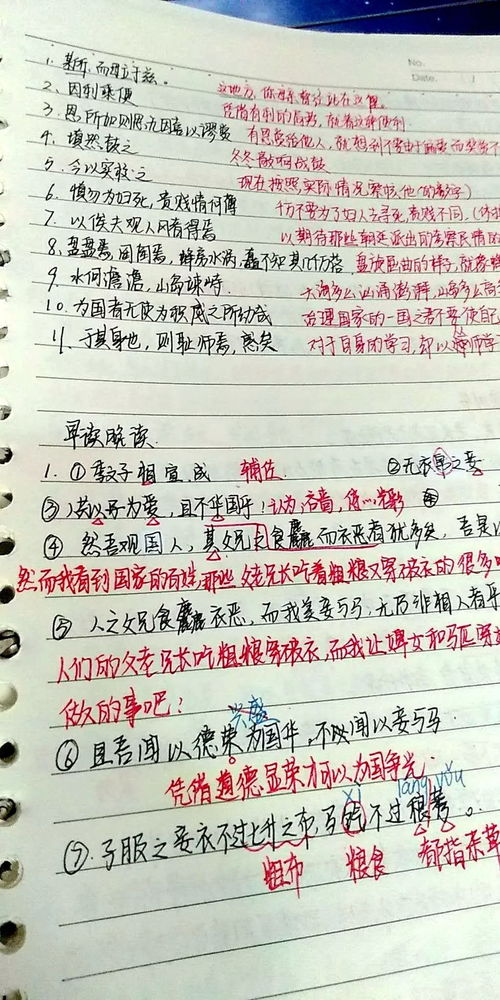 No.
Date.
1. 某所,而母立于兹。 这地方,你母亲曾经站在这里。
2. 因利乘便 凭借有利的形势,就着这种便利.
3. 恩所加则思无因喜以谬赏 有恩惠给他人,就想到不要由于
4. 填然鼓之 冬冬敲响战鼓
5. 今以实校之 现在按照实际情况来核他(的名字)
6. 慎勿为妇死,贵贱情何薄 千万不要为了妇人寻死,贵贱不同,
7. 以俟夫观人风者得焉 以期待那些朝廷派出的考察民情的
8. 盘盘焉,囷囷焉,蜂房水涡,矗不知其几千万落 盘旋屈曲的样子,就像蜂
9. 水何澹澹,山岛竦峙.
10. 为国者无使为积威之所劫哉 治理国家的一国之君不要使自己
11. 于其身也,则耻师焉,惑矣 对于自身的学习,却以
早读解读.
1. ① 季文子相宣、成 辅佐 ②无衣帛之妾
③ 其以子为爱,且不华国乎! 认为,吝啬,
④ 然吾观国人,其父兄食麤而衣恶者犹多矣,吾是以
然而我看到国家的百姓,那些父老兄长吃着粗粮又穿破衣的很多
⑤ 人之父兄食麤衣恶,而我美妾与马,无乃非相人者乎
人们的父老兄长吃粗粮穿破衣,而我让婢女和马匹
做人的事吧?
兴盛
⑥ 且吾闻以德荣为国华,不以闻以妾与马.
凭借道德显荣才可以为国争光.
xì láng yǒu
⑦. 子服之妾衣不过七升之布,马饩不过稂莠。
粗布 粮食 都指杂草